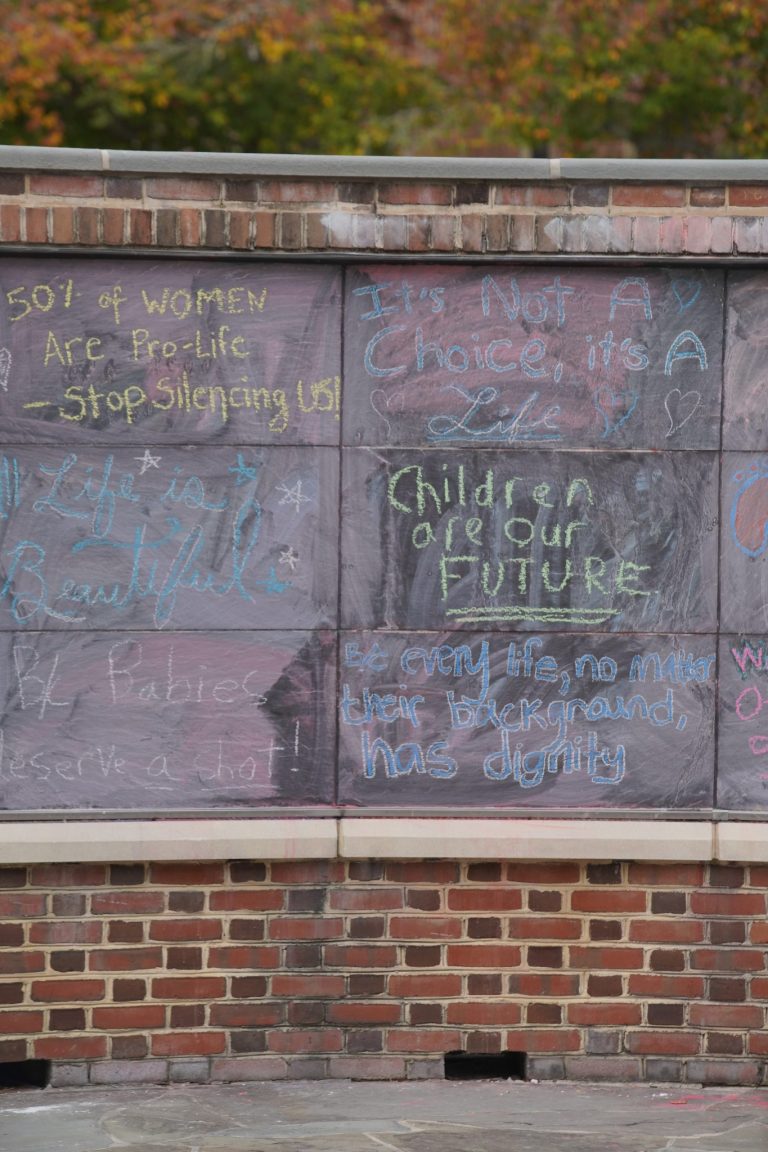 50% of WOMEN
Are Pro-Life
- Stop Silencing US!
It's Not A
Choice, it's A
Life
Life is
Beautiful
Children
are our
FUTURE
Babies
deserve a shot!
every life, no matter
their background,
has dignity